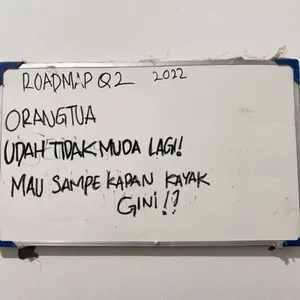 ROADMAP Q2 2022
ORANGTUA
UDAH TIDAK MUDA LAGI!
MAU SAMPE KAPAN KAYAK
GINI!?